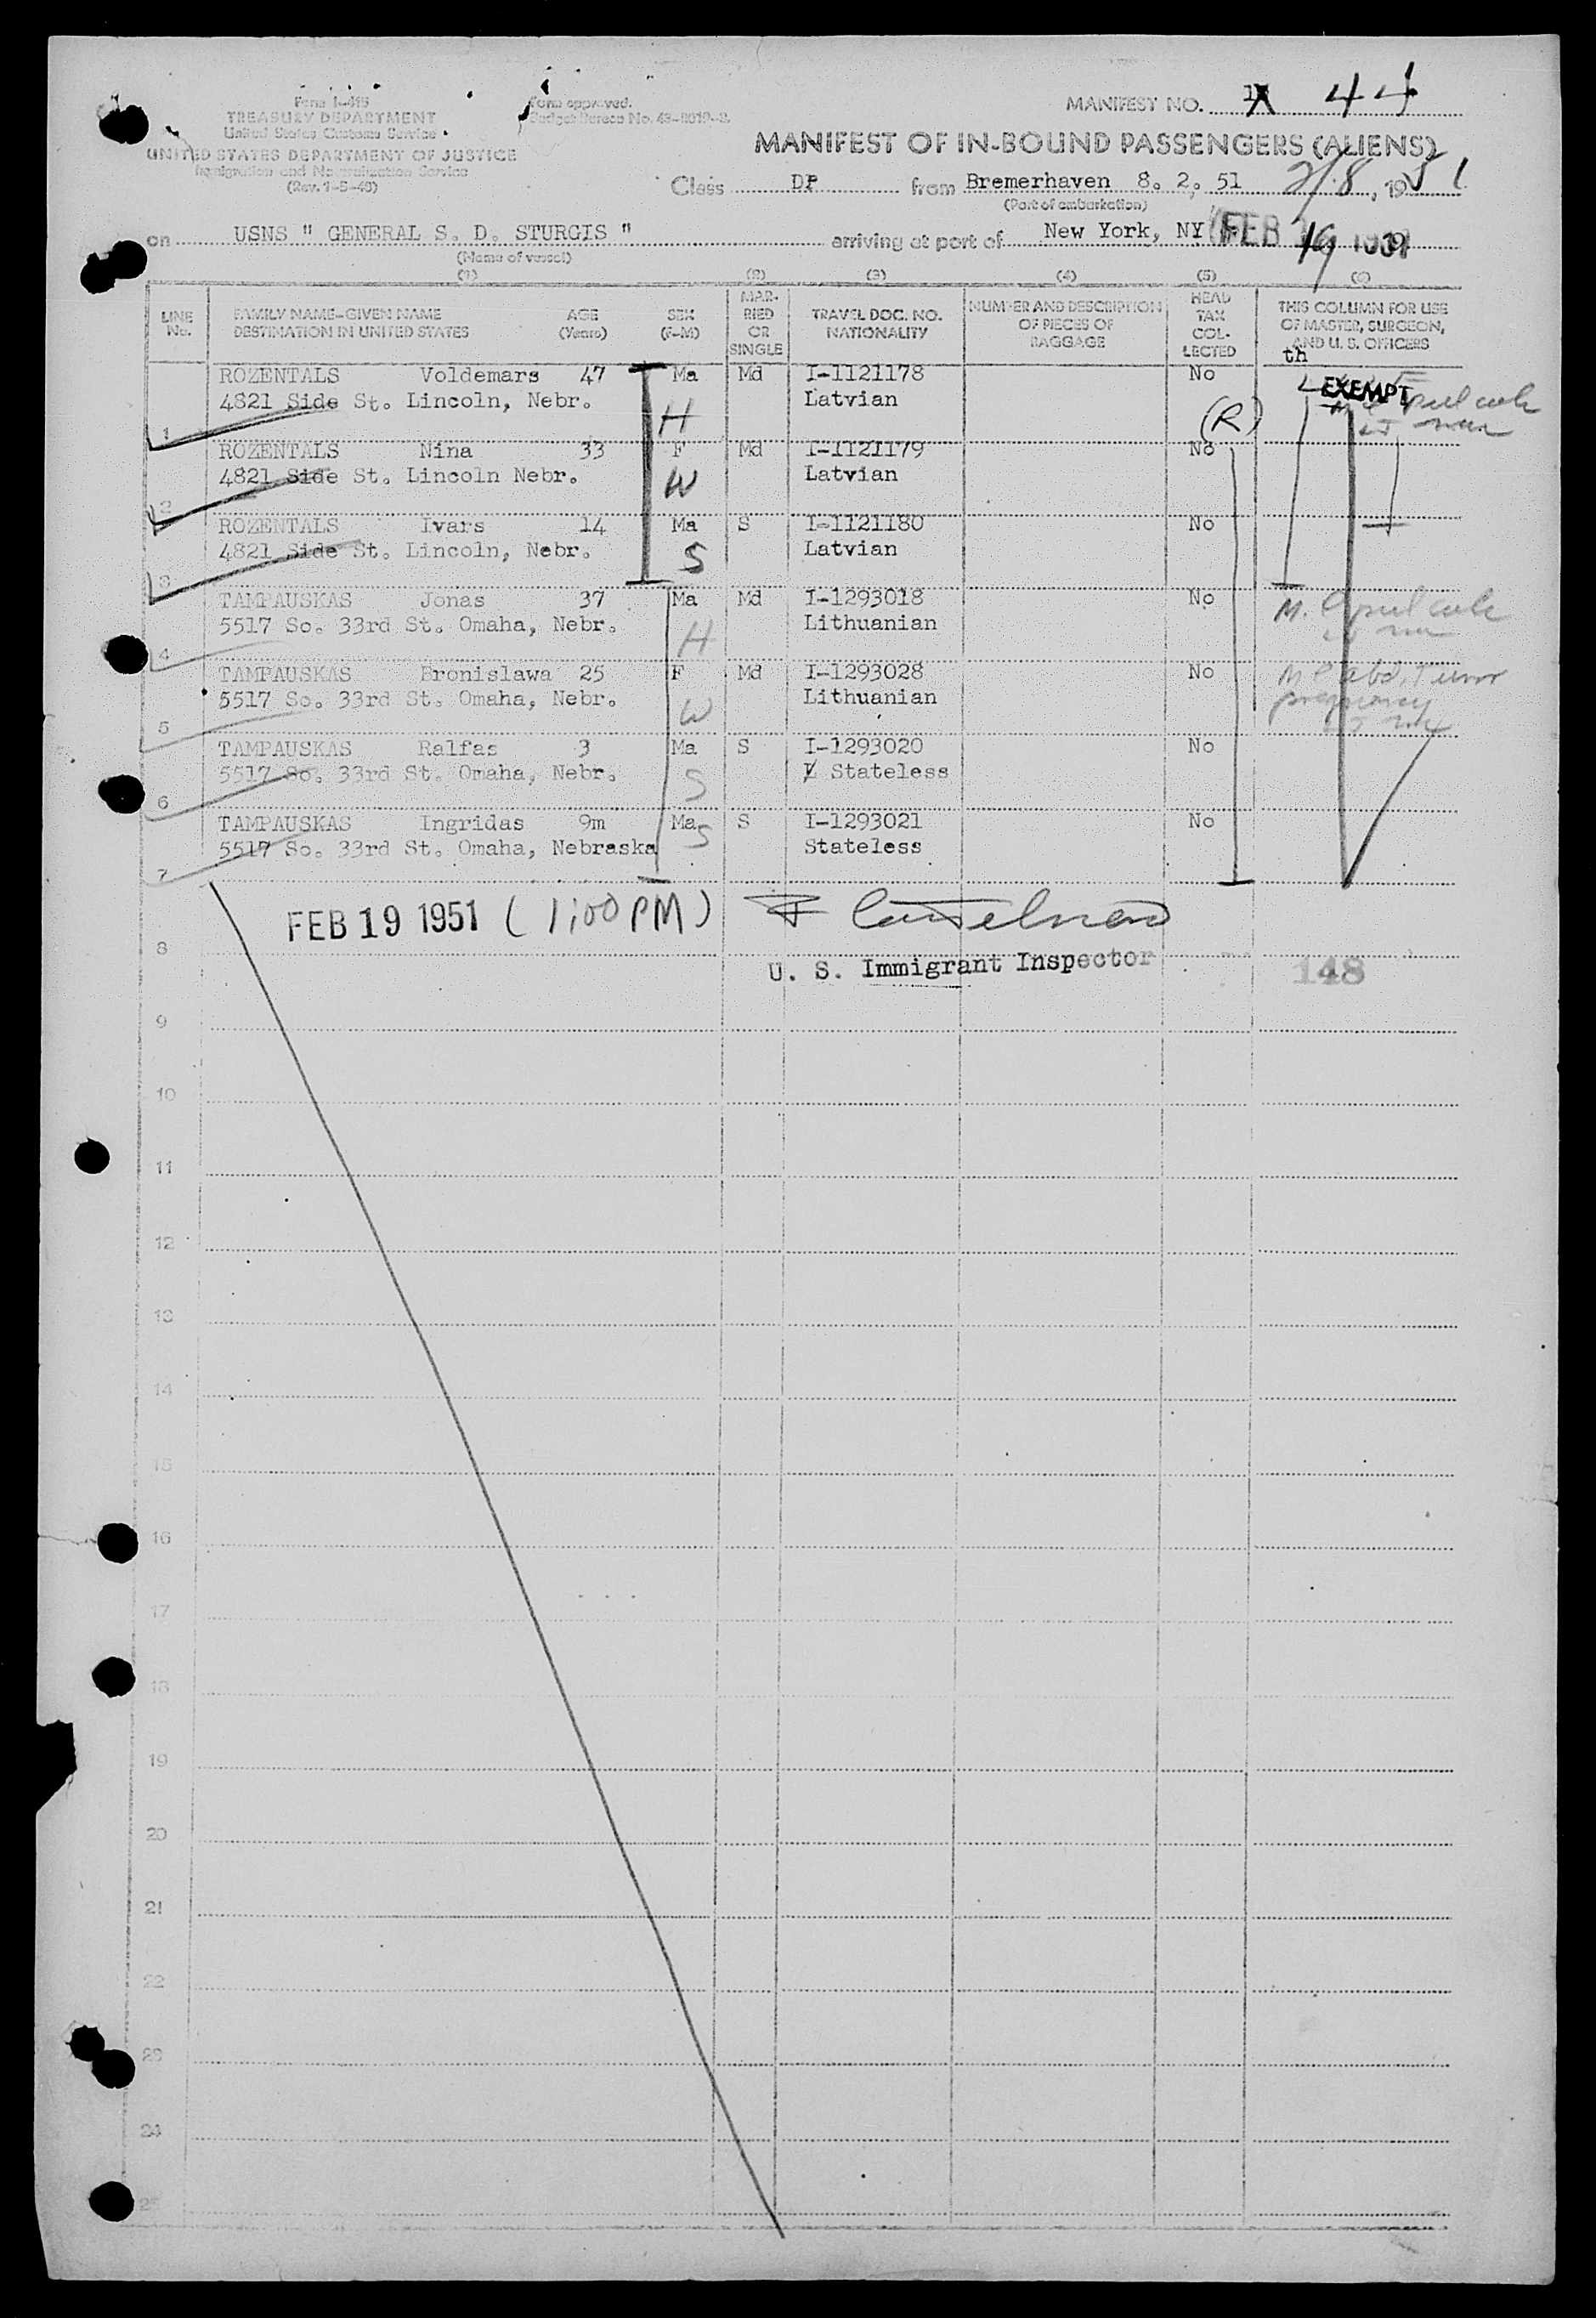 Form I-415
TREASURY DEPARTMENT
United States Customs Service
UNITED STATES DEPARTMENT OF JUSTICE
Immigration and Naturalization Service
(Rev. 1-5-49)
Form approved.
Budget Bureau No. 43-R019-2.
MANIFEST NO. 44
MANIFEST OF IN-BOUND PASSENGERS (ALIENS)
Class DP from Bremerhaven 8. 2. 51 2/8, 1951
(Port of embarkation)
on USNS " GENERAL S. D. STURGIS " arriving at port of New York, NY FEB 19 1951
(Name of vessel)
(1) (2) (3) (4) (5) (6)
LINE No. FAMILY NAME-GIVEN NAME DESTINATION IN UNITED STATES AGE (Years) SEX (F-M) MARRIED OR SINGLE TRAVEL DOC. NO. NATIONALITY NUMBER AND DESCRIPTION OF PIECES OF BAGGAGE HEAD TAX COLLECTED THIS COLUMN FOR USE OF MASTER, SURGEON, AND U. S. OFFICERS
th
ROZENTALS Voldemars 47 Ma Md I-1121178 No EXEMPT
1 4821 Side St. Lincoln, Nebr. H Latvian (R)
ROZENTALS Nina 33 F Md I-1121179 No
2 4821 Side St. Lincoln Nebr. W Latvian
ROZENTALS Ivars 14 Ma S I-1121180 No
3 4821 Side St. Lincoln, Nebr. S Latvian
TAMPAUSKAS Jonas 37 Ma Md I-1293018 No
4 5517 So. 33rd St. Omaha, Nebr. H Lithuanian
TAMPAUSKAS Bronislawa 25 F Md I-1293028 No
5 5517 So. 33rd St. Omaha, Nebr. W Lithuanian pregnancy
TAMPAUSKAS Ralfas 3 Ma S I-1293020 No
6 5517 So. 33rd St. Omaha, Nebr. S Stateless
TAMPAUSKAS Ingridas 9m Ma S S I-1293021 No
7 5517 So. 33rd St. Omaha, Nebraska Stateless
FEB 19 1951 (1:00 PM)
8
U. S. Immigrant Inspector 148
9
10
11
12
13
14
15
16
17
18
19
20
21
22
23
24
25